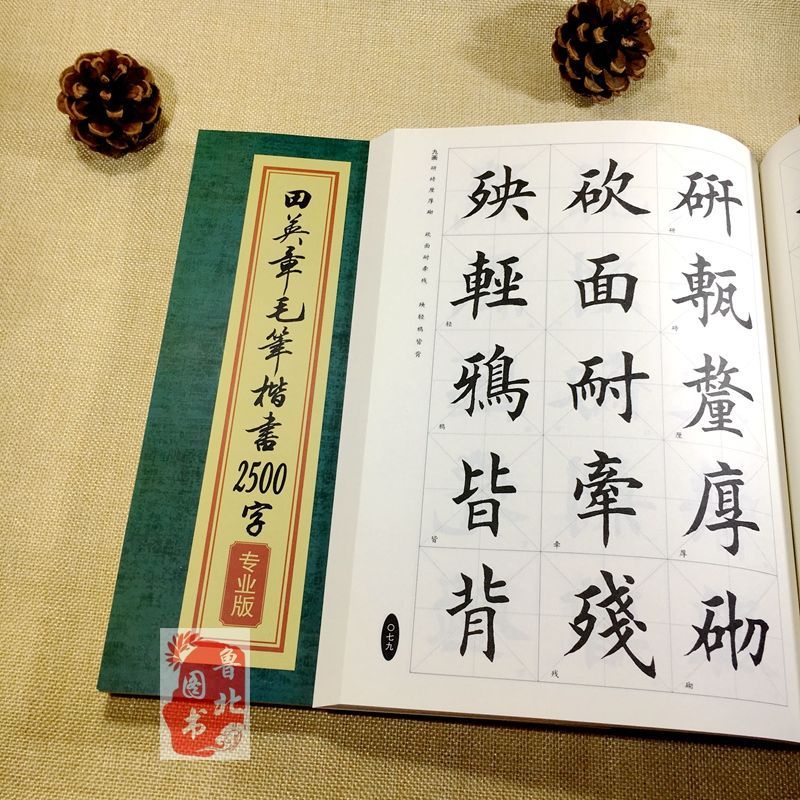 田英章毛筆楷書2500字
专业版
九画 研 砖 厘 厚 砌 砍 面 耐 牵 残 殃 轻 鸦 皆 背
研甎釐厚砌
研 砖 厘 厚 砌
砍面耐牽殘
牵 残
殃輕鴉皆背
轻 鸦 皆
〇七九
鲁北
图书